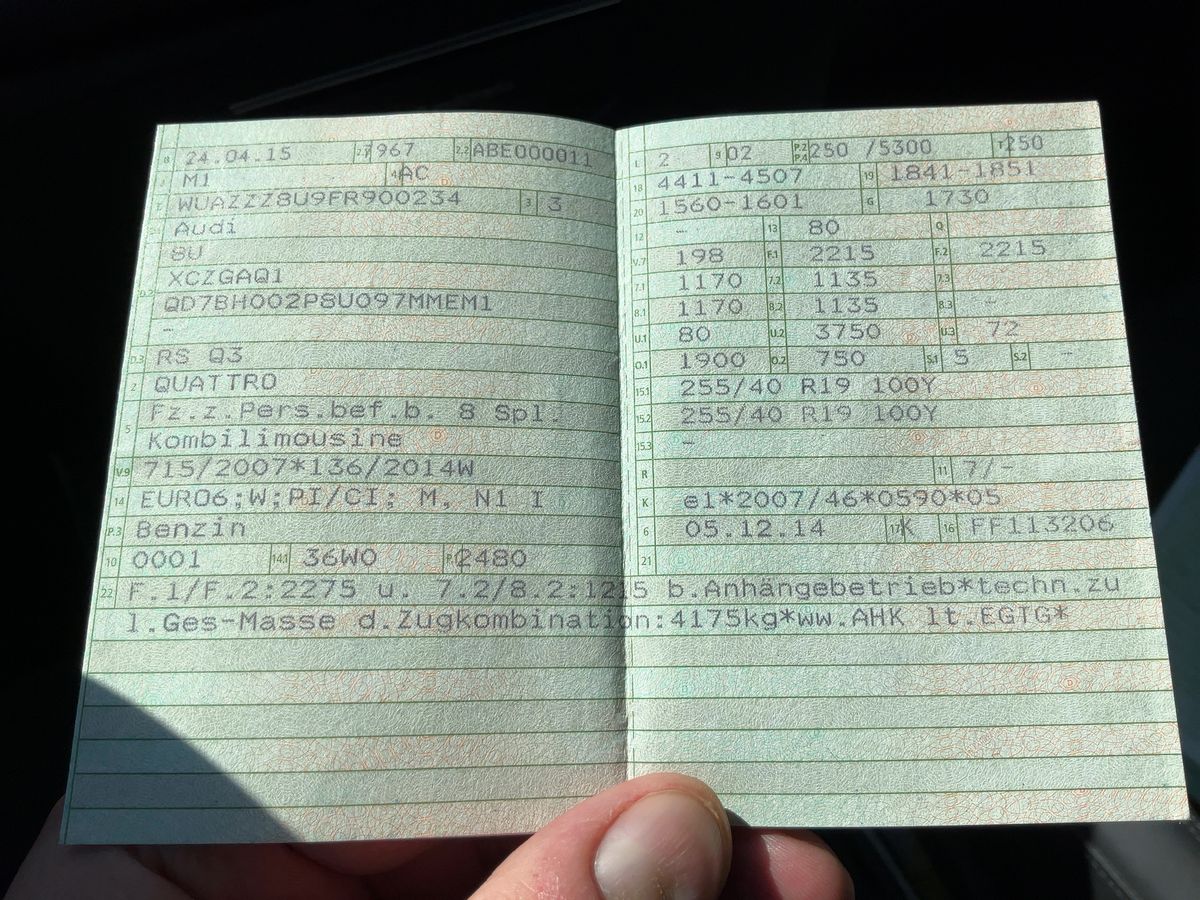 B 24.04.15 2.1 7967 2.2 ABE000011
J M1 4 AC
E WUAZZZ8U9FR900234 3 3
Audi
8U
XCZGAQ1
D.2 QD7BH002P8U097MMEM1
-
D.3 RS Q3
2 QUATTRO
5 Fz.z.Pers.bef.b. 8 Spl.
Kombilimousine
V.9 715/2007*136/2014W
14 EURO6;W;PI/CI; M, N1 I
P.3 Benzin
10 0001 14.1 36W0 P.1 2480
L 2 9 02 P.2 P.4 250 /5300 T 250
18 4411-4507 19 1841-1851
20 1560-1601 G 1730
12 - 13 80 Q
V.7 198 F.1 2215 F.2 2215
7.1 1170 7.2 1135 7.3
8.1 1170 8.2 1135 8.3 -
U.1 80 U.2 3750 U.3 72
O.1 1900 O.2 750 S.1 5 S.2 -
15.1 255/40 R19 100Y
15.2 255/40 R19 100Y
15.3 -
R 11 7/-
K e1*2007/46*0590*05
6 05.12.14 17 K 16 FF113206
21
22 F.1/F.2:2275 u. 7.2/8.2:1215 b.Anhängebetrieb*techn.zu
l.Ges-Masse d.Zugkombination:4175kg*ww.AHK lt.EGTG*